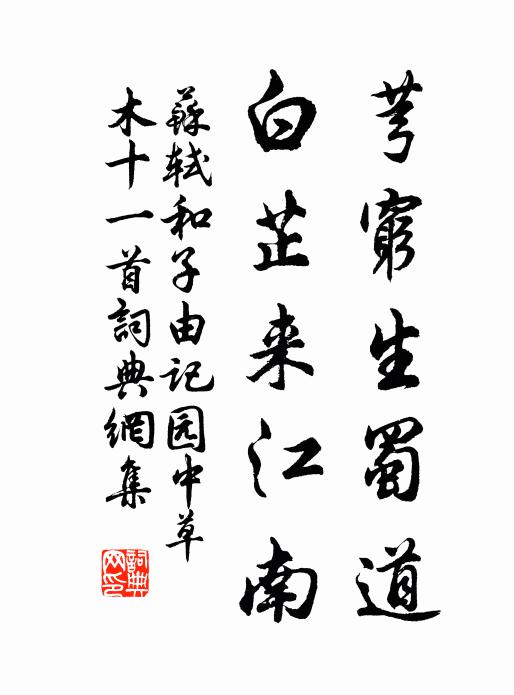 芎窮生蜀道
白芷来江南
蘇軾和子由记园中草
木十一首詞典網集
詞典网印